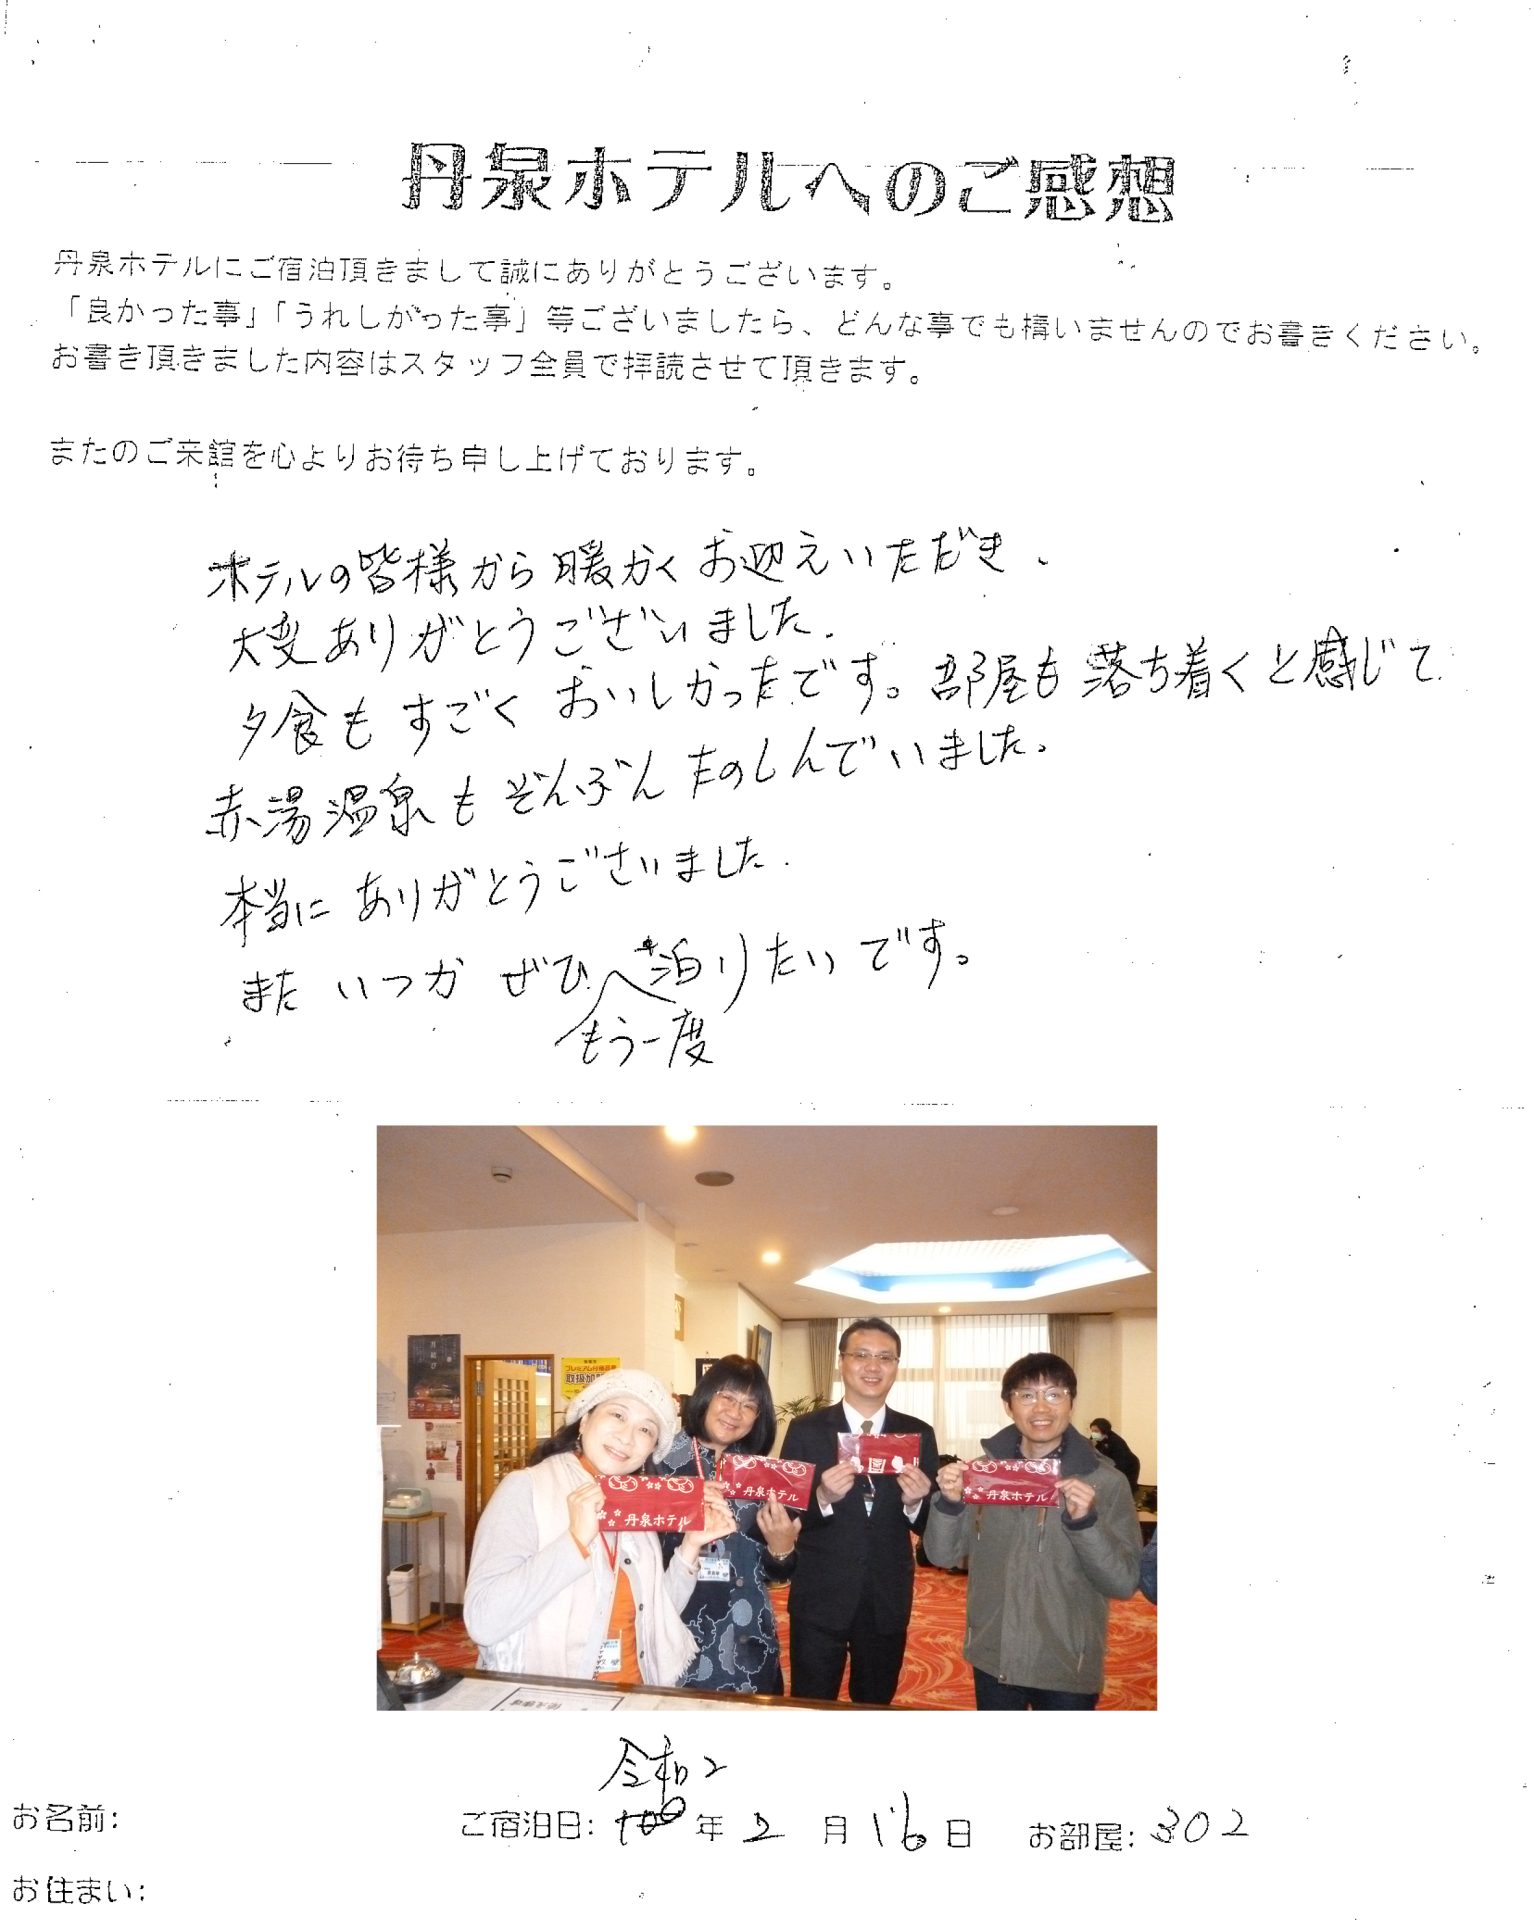 丹泉ホテルへのご感想
丹泉ホテルにご宿泊頂きまして誠にありがとうございます。
「良かった事」「うれしかった事」等ございましたら、どんな事でも構いませんのでお書きください。
お書き頂きました内容はスタッフ全員で拝読させて頂きます。
またのご来館を心よりお待ち申し上げております。
ホテルの皆様から暖かくお迎えいただき、
大変ありがとうございました.
夕食もすごくおいしかったです。部屋も落ち着くと感じて
赤湯温泉もぞんぶんたのしんでいました.
本当にありがとうございました.
またいつかぜひ泊りたいです。
もう一度
プレミアム付商品券
丹泉ホテル
丹泉ホテル
丹泉ホテル
令和2
お名前:
ご宿泊日: 年2月16日
お部屋:302
お住まい: